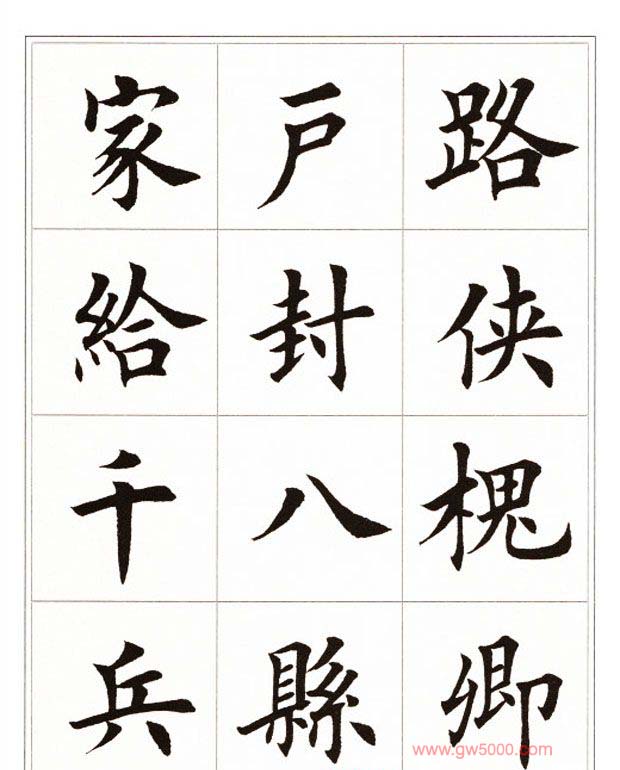 路侠槐卿
戸封八縣
家給千兵
www.gw5000.com